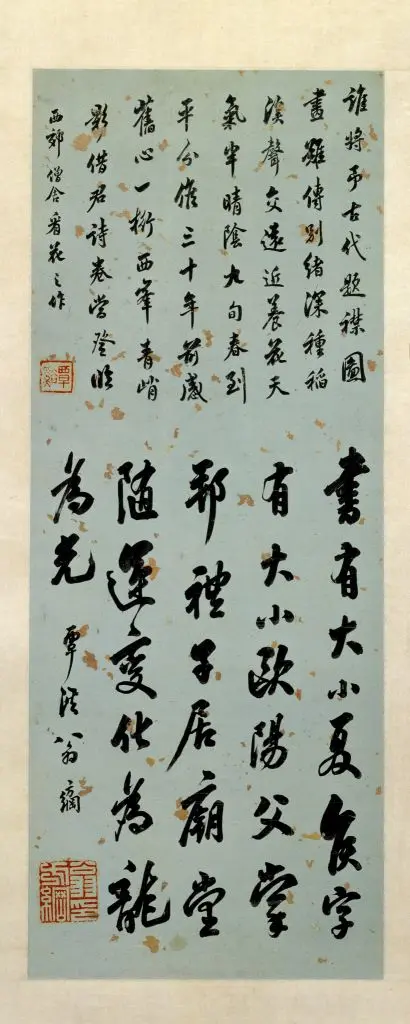 誰將弔古代題襟圖
畫雖傳別緒深種稻
溪聲交遠近養花天
氣半晴陰九旬春到
平分候三十年前感
舊心一桁西峯青峭
影借君詩卷當登臨
西郊僧舍看花之作
覃谿
書有大小夏侯字
有大小歐陽父掌
邦禮子居廟堂
隨運變化為龍
為光
覃溪翁方綱
翁方綱印